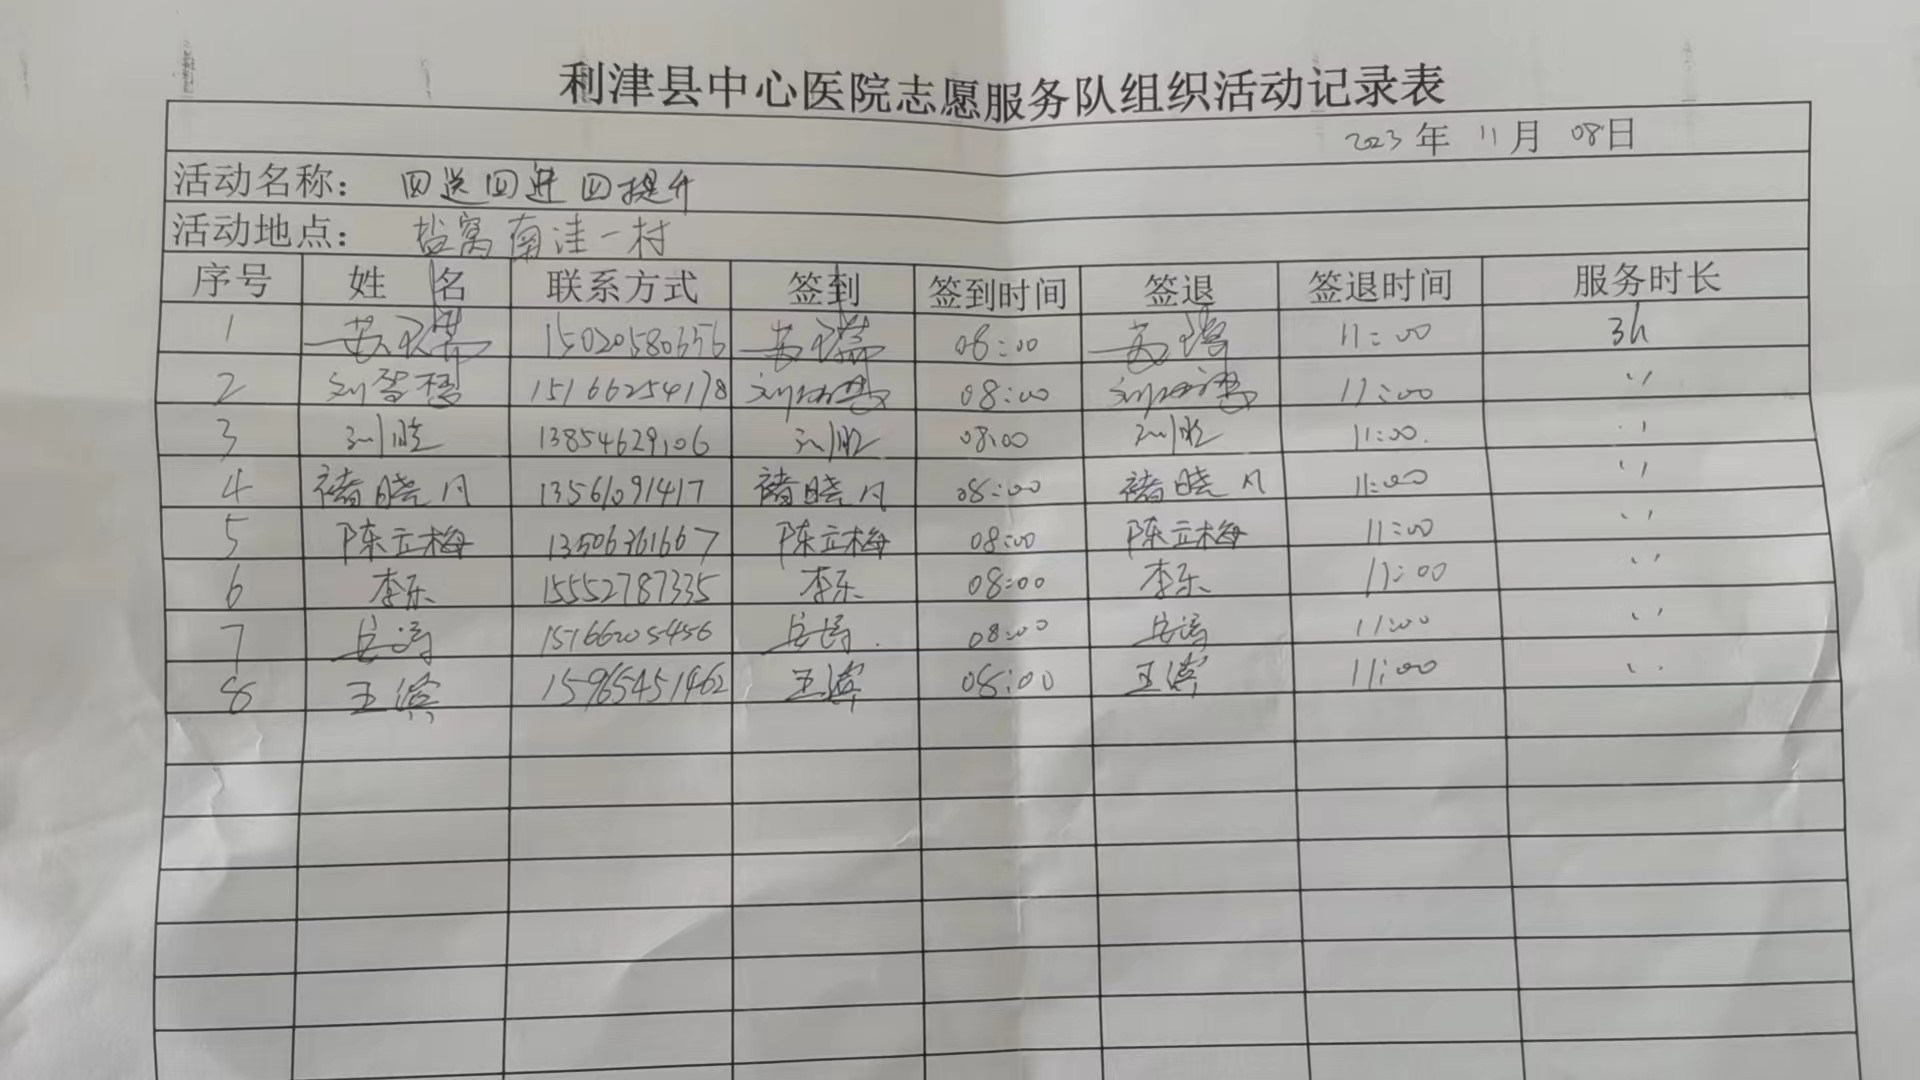 利津县中心医院志愿服务队组织活动记录表
2023年 11月 08日
活动名称： 四送四进四提升
活动地点： 盐窝南洼一村
序号 姓 名 联系方式 签到 签到时间 签退 签退时间 服务时长
1 15020580656 08:00 11:00 3h
2 15166254178 08:00 11:00 〃
3 刘胜 13854629106 刘胜 08:00 刘胜 11:00 〃
4 褚晓凡 13561091417 褚晓凡 08:00 褚晓凡 11:00 〃
5 陈立梅 13506361667 陈立梅 08:00 陈立梅 11:00 〃
6 李乐 15552787335 李乐 08:00 李乐 11:00 〃
7 15166205456 08:00 11:00 〃
8 王滨 15965451462 王滨 08:00 王滨 11:00 〃